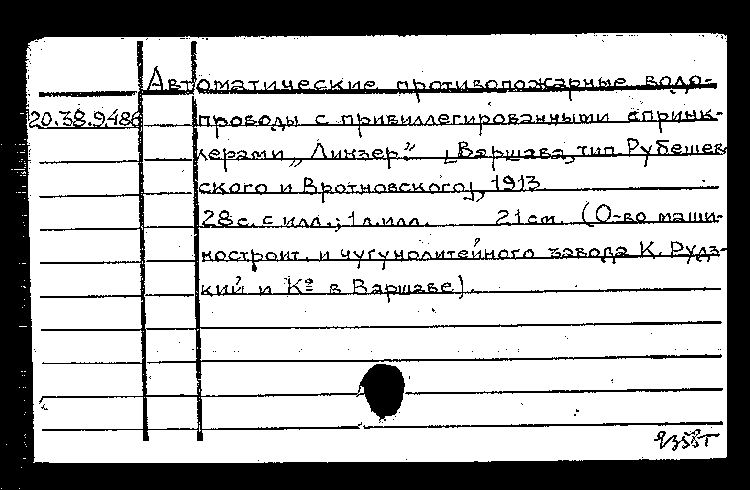 Автоматические противопожарные водо-
20.38.9.486 проводы с привиллегированными спринк-
лерами „Линзер". [Варшава, тип. Рубешев-
ского и Вротновского], 1913.
28 с. с илл.; 1 л. илл. 21 см. (О-во маши-
ностроит. и чугунолитейного завода К. Рудз-
кий и К° в Варшаве).